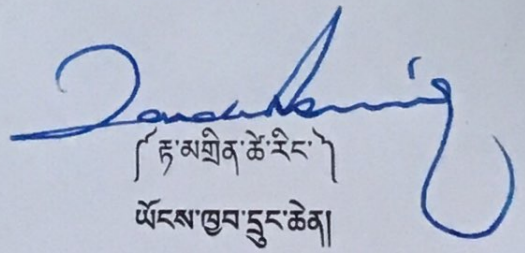 ༼ རྟ་མགྲིན་ཚེ་རིང་ ༽
ཡོངས་ཁྱབ་དྲུང་ཆེན།